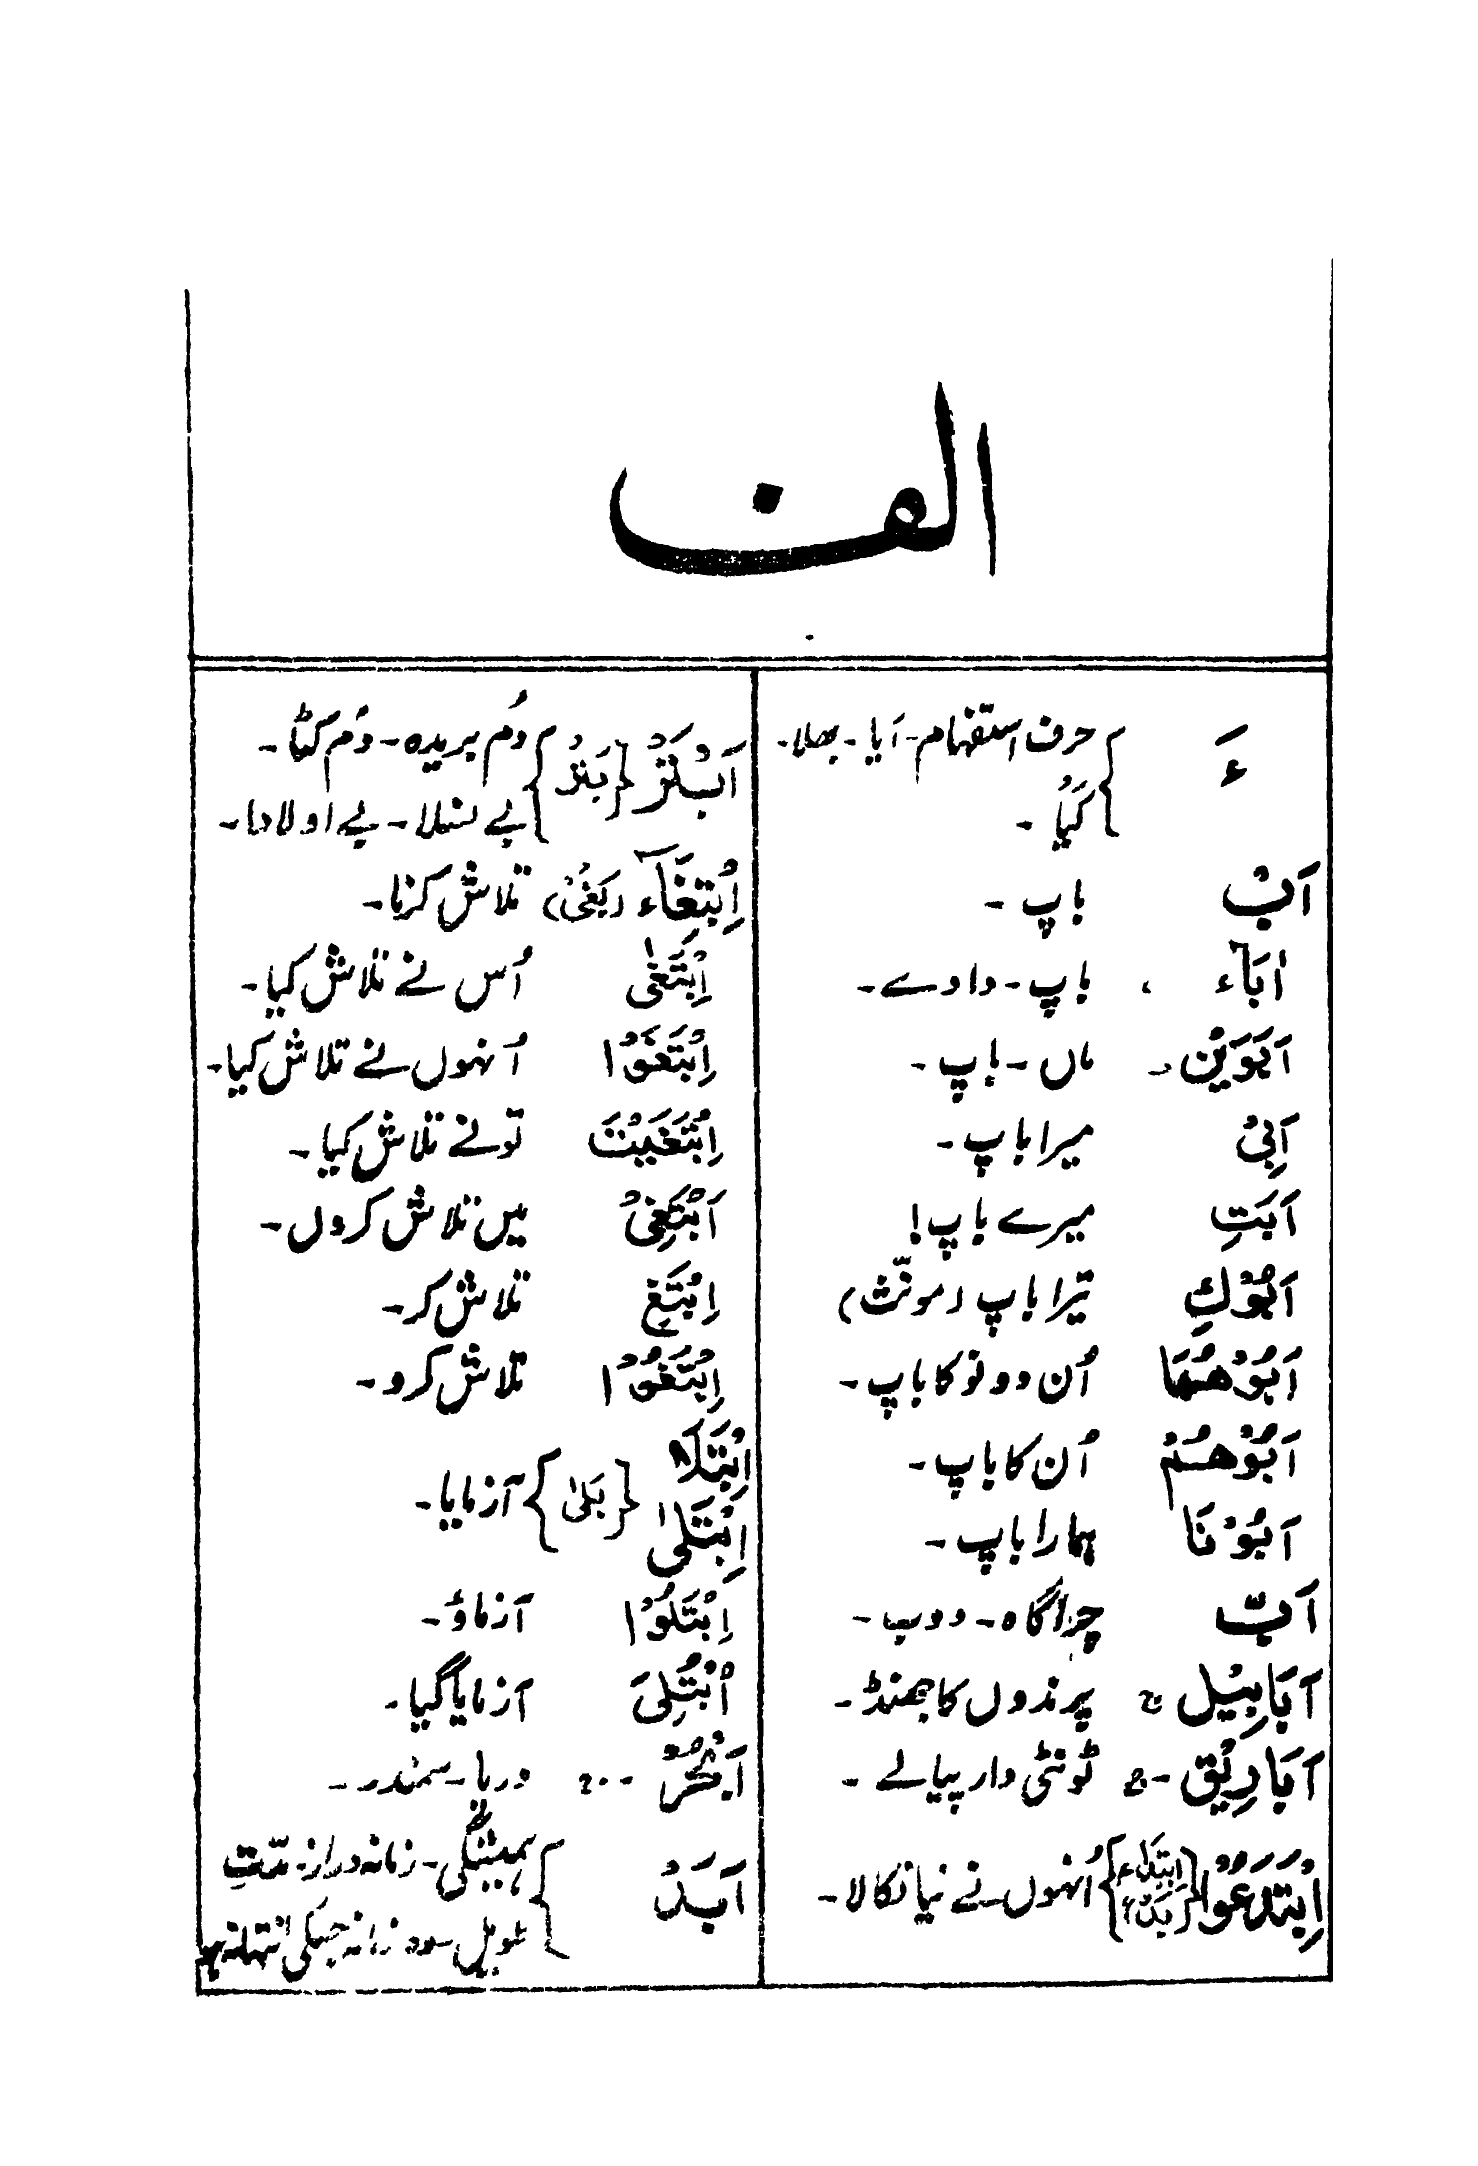 الف
ءَ } حرف استفہام۔ آیا۔ بھلا۔
کَیا۔
اَبٌ باپ۔
اٰبَآء باپ۔ دادے۔
اَبَوَيْنِ ماں۔ باپ۔
اَبِيْ میرا باپ۔
اَبَتِ میرے باپ!
اَبُوْكِ تیرا باپ (مونّث)
اَبُوْهُمَا اُن دونو کا باپ۔
اَبُوْهُمْ اُن کا باپ۔
اَبُوْنَا ہمارا باپ۔
اَبّ چراگاہ۔ دوب۔
اَبَابِيْل ج پرندوں کا جھنڈ۔
اَبَارِيْق۔ج ٹونٹی دار پیالے۔
اِبْتَدَعُوْا {اِبْتِدَاع بَدْع} اُنہوں نے نیا نکالا۔
اَبْتَرُ {بَتْر} دُم بریدہ۔ دُم کٹا۔
بے نسلا۔ بے اولادا۔
اِبْتِغَآء (بَغْیٌ) تلاش کرنا۔
اِبْتَغٰى اُس نے تلاش کیا۔
اِبْتَغَوْا اُنہوں نے تلاش کیا۔
اِبْتَغَيْتَ تونے تلاش کیا۔
اَبْتَغِيْ میں تلاش کروں۔
اِبْتَغِ تلاش کر۔
اِبْتَغُوْا تلاش کرو۔
اِبْتَلَا
اِبْتَلٰى {بَلٰی} آزمایا۔
اِبْتَلُوْا آزماؤ۔
اُبْتُلِيَ آزمایا گیا۔
اَبْحُرٌ ۔۔ج دریا۔ سمندر۔
اَبَدٌ } ہمیشگی۔ زمانہ دراز۔ مدّتِ
طویل۔ وہ زمانہ جسکی انتہا نہ ہو